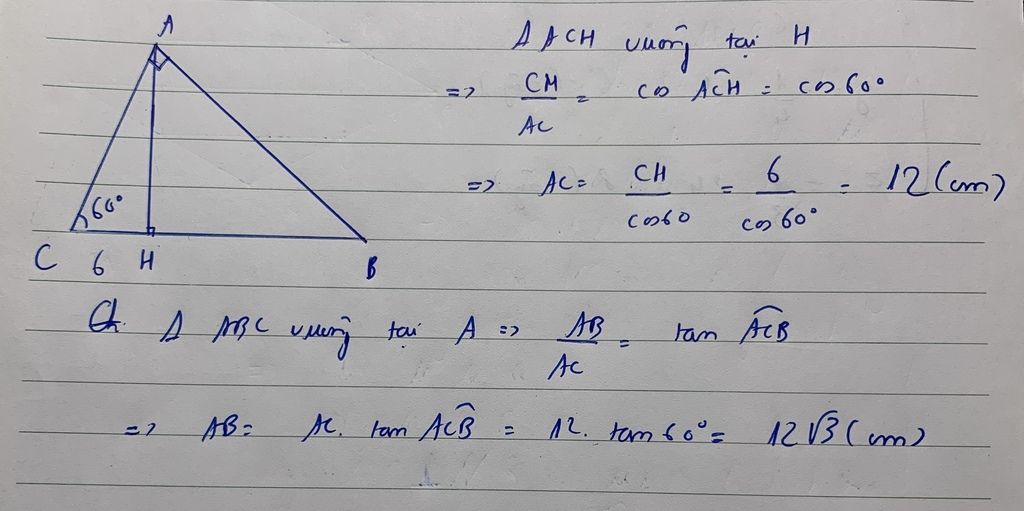 A
60°
C 6 H B
Δ ACH vuông tại H
=> CH/AC = cos ACH = cos 60°
=> AC = CH/cos60 = 6/cos 60° = 12 (cm)
Δ ABC vuông tại A => AB/AC = tan ACB
=> AB = AC. tan ACB = 12. tan 60° = 12√3 (cm)